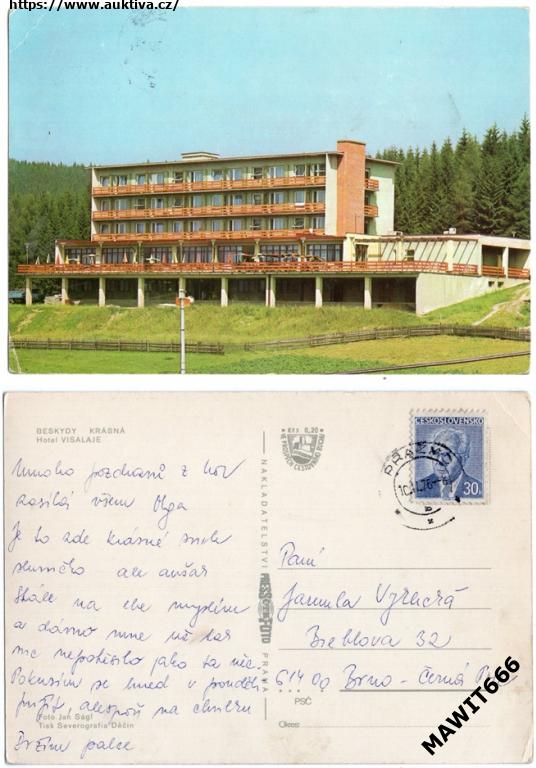 https://www.auktiva.cz/
BESKYDY KRÁSNÁ
Hotel VISALAJE
Mnoho pozdravů z hor
zasílá všem Olga
Je to zde krásné sníh
sluníčko ale
Stále na myslím
a dávno mne už tak
nic nepotěšilo jako ta věc.
Pokusím se hned v pondělí
přijít, alespoň na chvilku
Držím palce
Foto Jan Ságl
Tisk Severografia Děčín
Kčs 0,20
VE PROSPĚCH CESTOVNÍHO RUCHU
NAKLADATELSTVÍ
PRESSFOTO
PRAHA
ČESKOSLOVENSKO
30h
PRAŽMO
Paní
Jarmila
Bieblova 32
614 00 Brno - Černá Pole
PSČ
Okres:
MAWIT666